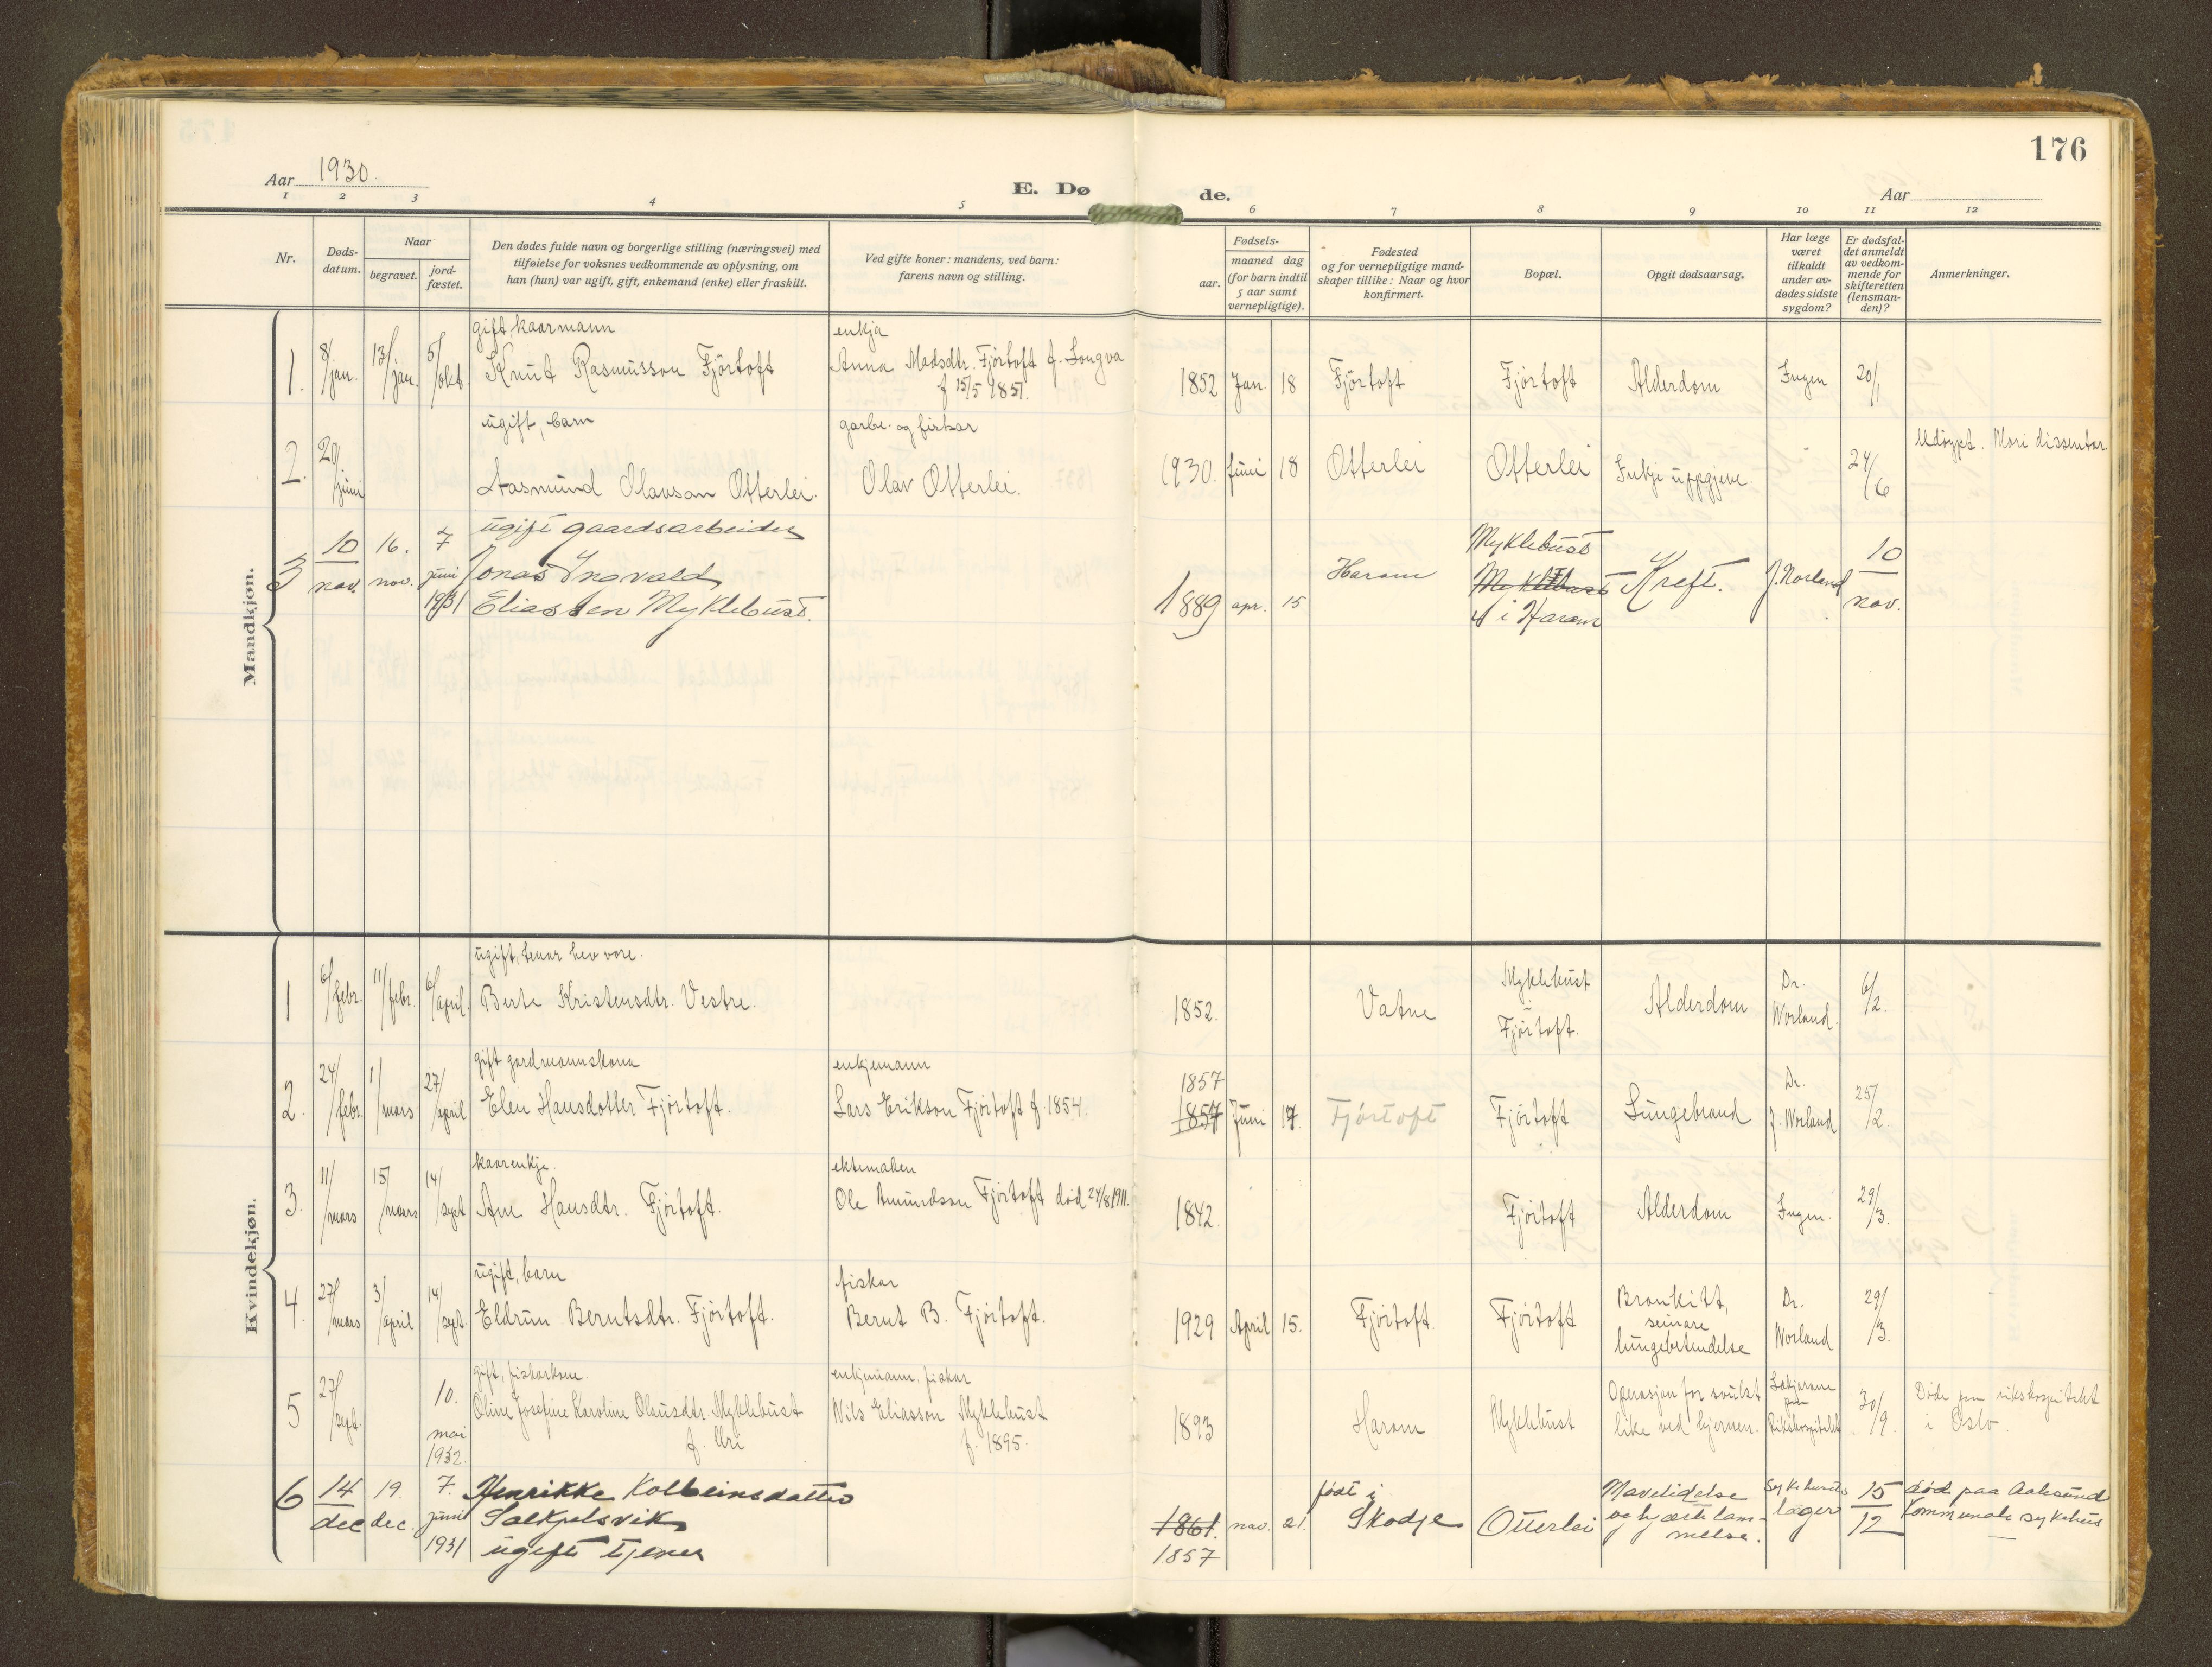 176
Aar 1930.
E. Dø
de.
Aar
1 2 3 4 5 6 7 8 9 10 11 12
Nr.
Døds-
datum.
Naar
begravet.
jord-
fæstet.
Den dødes fulde navn og borgerlige stilling (næringsvei) med
tilføielse for voksnes vedkommende av oplysning, om
han (hun) var ugift, gift, enkemand (enke) eller fraskilt.
Ved gifte koner: mandens, ved barn:
farens navn og stilling.
Fødsels-
aar.
maaned dag
(for barn indtil
5 aar samt
vernepligtige).
Fødested
og for vernepligtige mand-
skaper tillike: Naar og hvor
konfirmert.
Bopæl.
Opgit dødsaarsag.
Har læge
været
tilkaldt
under av-
dødes sidste
sygdom?
Er dødsfal-
det anmeldt
av vedkom-
mende for
skifteretten
(lensman-
den)?
Anmerkninger.
Mandkjøn.
1. 8/jan. 13/jan. 5/okt.
gift kaarmann
Knut Rasmusson Fjörtoft
enkja
Anna Madsdtr. Fjörtoft f. Longva
f 15/5 1851.
1852 Jan. 18 Fjörtoft Fjörtoft Alderdom Ingen 20/1
2. 20/juni
ugift, barn
Aasmund Olavson Otterlei.
garbr. og fiskar
Olav Otterlei.
1930. juni 18 Otterlei Otterlei Inkje uppgjeve. 24/6
Udöypt. Mori dissentar
3 10/nov. 16. nov. 7 juni 1931
ugift gaardsarbeider
Jonas Ingvald
Eliassen Myklebust.
1889 apr. 15 Haram
Myklebust
Myklebust
i Haram
Kreft. J. Norland 10/nov.
Kvindekjøn.
1 6/febr. 11/febr. 6/april.
ugift, tenar hev vore.
Berte Kristensdtr. Vestre.
1852. Vatne
Myklebust
Fjörtoft.
Alderdom
Dr.
Norland.
6/2.
2. 24/febr. 1/mars 27/april
gift gardmannskona
Elen Hansdotter Fjörtoft.
enkjemann
Lars Erikson Fjörtoft f. 1854.
1857
1857 Juni 17 Fjörtoft Fjörtoft Lungebrand
Dr.
J. Norland
25/2.
3. 11/mars 15/mars 14/sept
kaarenkje.
Ane Hansdtr. Fjörtoft.
ektemaken
Ole Amundson Fjörtoft död 24/8 1911.
1842. Fjörtoft Alderdom Ingen. 29/3.
4. 27/mars 3/april 14/sept.
ugift, barn
Eldrun Berntsdtr. Fjörtoft.
fiskar
Bernt B. Fjörtoft.
1929 April 15. Fjörtoft. Fjörtoft
Bronkitt,
seinare
lungebetendelse
Dr.
Norland
29/3.
5 27/sept. 10. mai 1932.
gift, fiskarkone.
Oline Josefine Karoline Olausdtr. Myklebust
f. Uri
enkjemann, fiskar
Nils Eliasson Myklebust
f. 1895.
1893 Haram Myklebust
Operasjon for svulst
like ved hjernen.
Lækjarane
paa
Rikshospitalet
30/9.
Döde paa rikshospitalet
i Oslo.
6 14/dec 19. dec. 7. juni 1931
Henrikke Kolbeinsdatter
Solkjelsvik
ugift tjener
1861. nov. 21.
1857
født i
Skodje
Otterlei
Mavelidelse
og hjertelam-
melse.
Sykehusets
læger
15/12
død paa Aalesund
kommunale sykehus